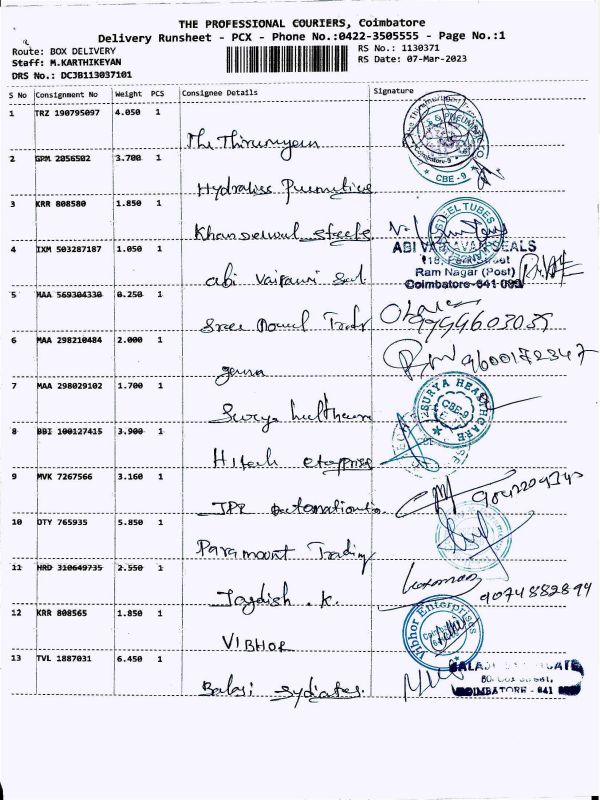 THE PROFESSIONAL COURIERS, Coimbatore
Delivery Runsheet - PCX - Phone No.:0422-3505555 - Page No.:1
Route: BOX DELIVERY
RS No.: 1130371
Staff: M.KARTHIKEYAN
RS Date: 07-Mar-2023
DRS No.: DCJB113037101
S No Consignment No Weight PCS Consignee Details Signature
1 TRZ 190795097 4.050 1
The Thirumyeem
CBE - 9
2 GRM 2056502 3.700 1
Hydraliss Pneumatics
3 KRR 808580 1.850 1
Khandelwal steels
STEEL TUBES
4 IXM 503287187 1.050 1
ABI VAIRAVAR SEALS
Ram Nagar (Post)
Coimbatore-641 009
abi Vairavi Seal
5 MAA 569304330 0.250 1
Sree
6 MAA 298210484 2.000 1
9600172347
7 MAA 298029102 1.700 1
SURYA HEALTHCARE
CBE-9
Surya healthcare
8 BBI 100127415 3.900 1
Hitech eterprise
9 MVK 7267566 3.160 1
JPR Automation
10 OTY 765935 5.850 1
Paramount Trading
11 HRD 310649735 2.550 1
9074882894
Jagdish . K.
12 KRR 808565 1.850 1
Vibhor Enterprises
VIBHOR
13 TVL 1887031 6.450 1
COIMBATORE - 641
Balaji Sydicates